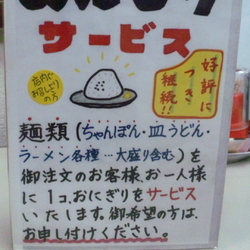 おにぎり
サービス
店内で
お召し上がり
の方
好評に
つき
継続!!
麺類(ちゃんぽん・皿うどん・
ラーメン各種…大盛り含む)を
御注文のお客様、お一人様
に1コ、おにぎりをサービス
いたします。御希望の方は、
お申し付けください。